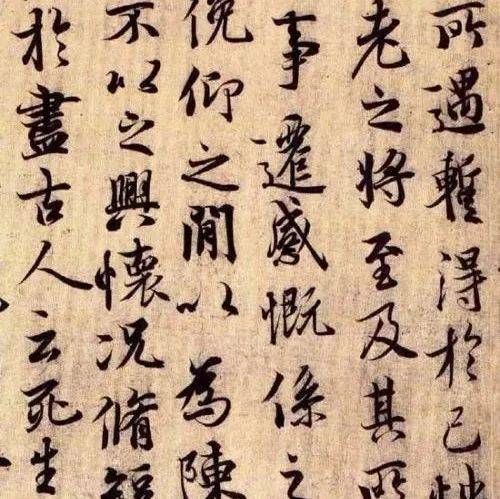 所遇暫得於己
老之將至及其所
事遷感慨係之
俛仰之閒以為陳
不以之興懷況脩短
於盡古人云死生